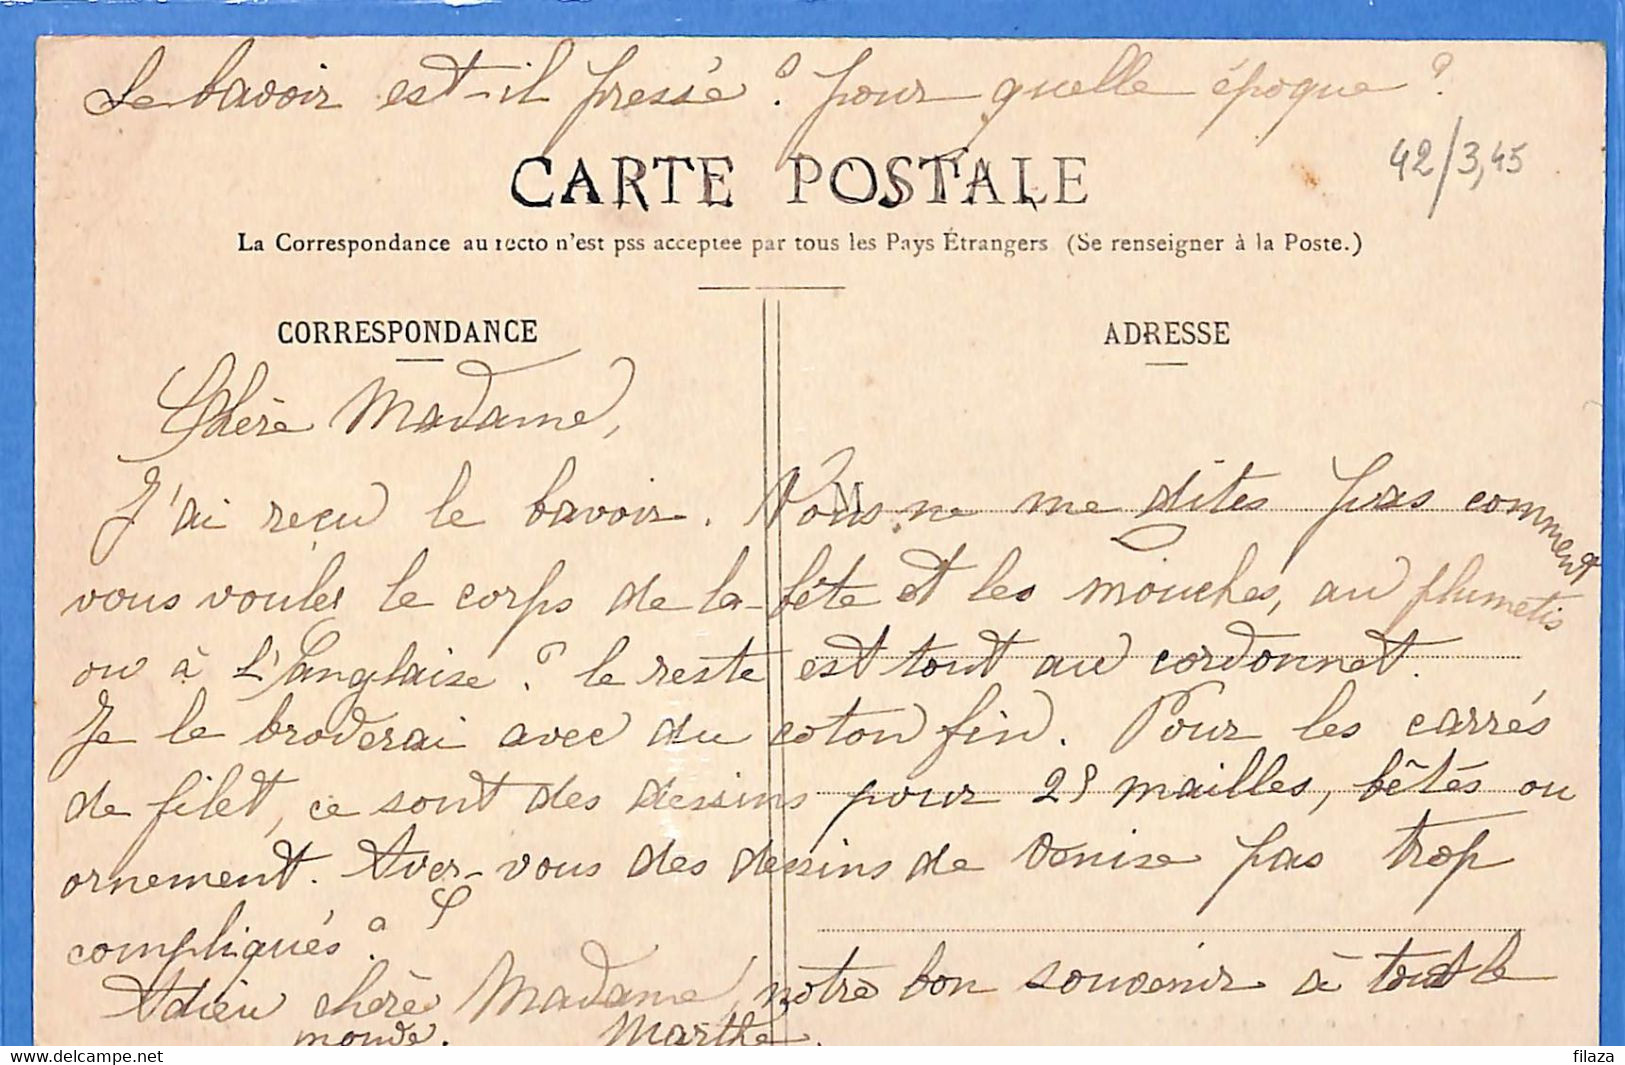 Le bavoir est-il pressé ? pour quelle époque ?
42/3,45
CARTE POSTALE
La Correspondance au recto n'est pss acceptee par tous les Pays Étrangers (Se renseigner à la Poste.)
CORRESPONDANCE
ADRESSE
Chère Madame,
M
J'ai reçu le bavoir. Vous ne me dites pas comment
vous voulez le corps de la bête et les mouches, au plumetis
ou à l'anglaise ? le reste est tout au cordonnet.
Je le broderai avec du coton fin. Pour les carrés
de filet, ce sont des dessins pour 25 mailles, bêtes ou
ornement. Avez-vous des dessins de Venise pas trop
compliqués ?
Adieu chère Madame, notre bon souvenir à tout le
monde. Marthe.
delcampe.net
filaza